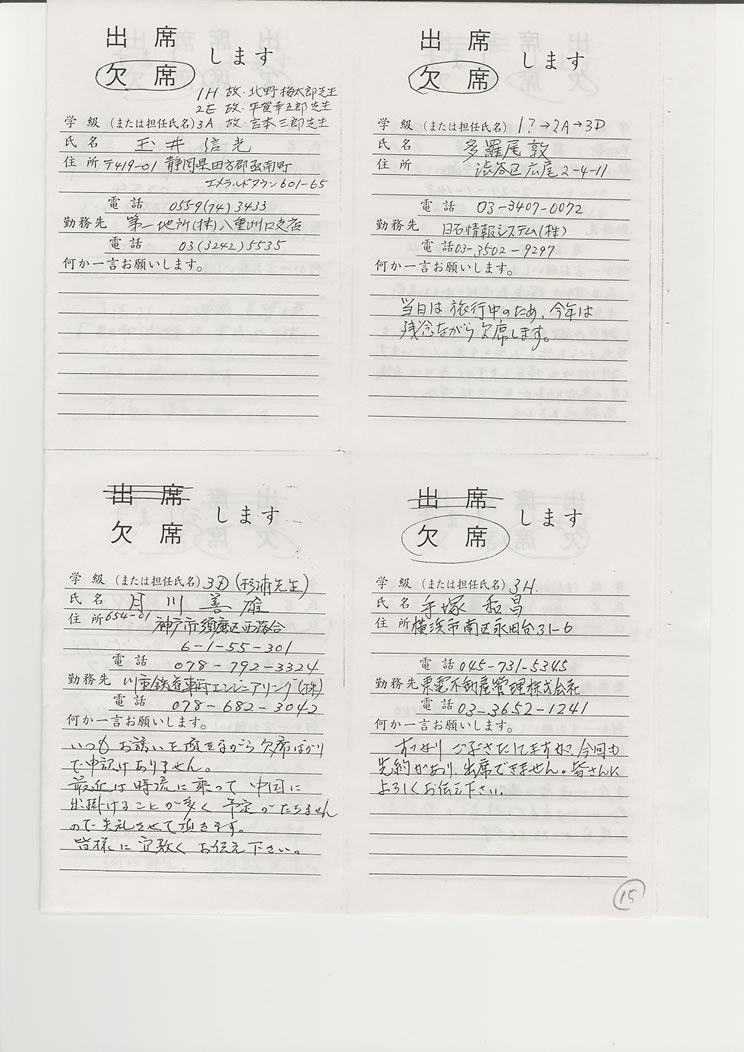 出席
欠席 します
1H 故・北野梅太郎先生
2E 故・平賀幸五郎先生
学級 (または担任氏名) 3A 故・宮本三郎先生
氏名 玉井信光
住所 〒419-01 静岡県田方郡函南町
エメラルドタウン601-65
電話 0559(74)3433
勤務先 第一地所(株)八重洲口支店
電話 03(3242)5535
何か一言お願いします。
出席
欠席 します
学級 (または担任氏名) 1?→2A→3D
氏名 多羅尾敦
住所 渋谷区広尾2-4-11
電話 03-3407-0072
勤務先 日石情報システム(株)
電話 03-3502-9297
何か一言お願いします。
当日は旅行中のため、今年は
残念ながら欠席します。
出席
欠席 します
学級 (または担任氏名) 3D (杉浦先生)
氏名 月川善雄
住所 654-01 神戸市須磨区西落合
6-1-55-301
電話 078-792-3324
勤務先 川重鉄道車両エンジニアリング(株)
電話 078-682-3042
何か一言お願いします。
いつもお誘いを頂きながら欠席ばかり
で申訳けありません。
最近は時流に乗って中国に
出掛けることが多く予定がたちません
ので失礼させて頂きます。
皆様に宜敷くお伝え下さい。
出席
欠席 します
学級 (または担任氏名) 3H.
氏名 手塚和昌
住所 横浜市南区永田台31-6
電話 045-731-5345
勤務先 東電不動産管理株式会社
電話 03-3652-1241
何か一言お願いします。
ご苦労さまですが、今回も
先約があり、出席できません。皆さんに
よろしくお伝え下さい。
15